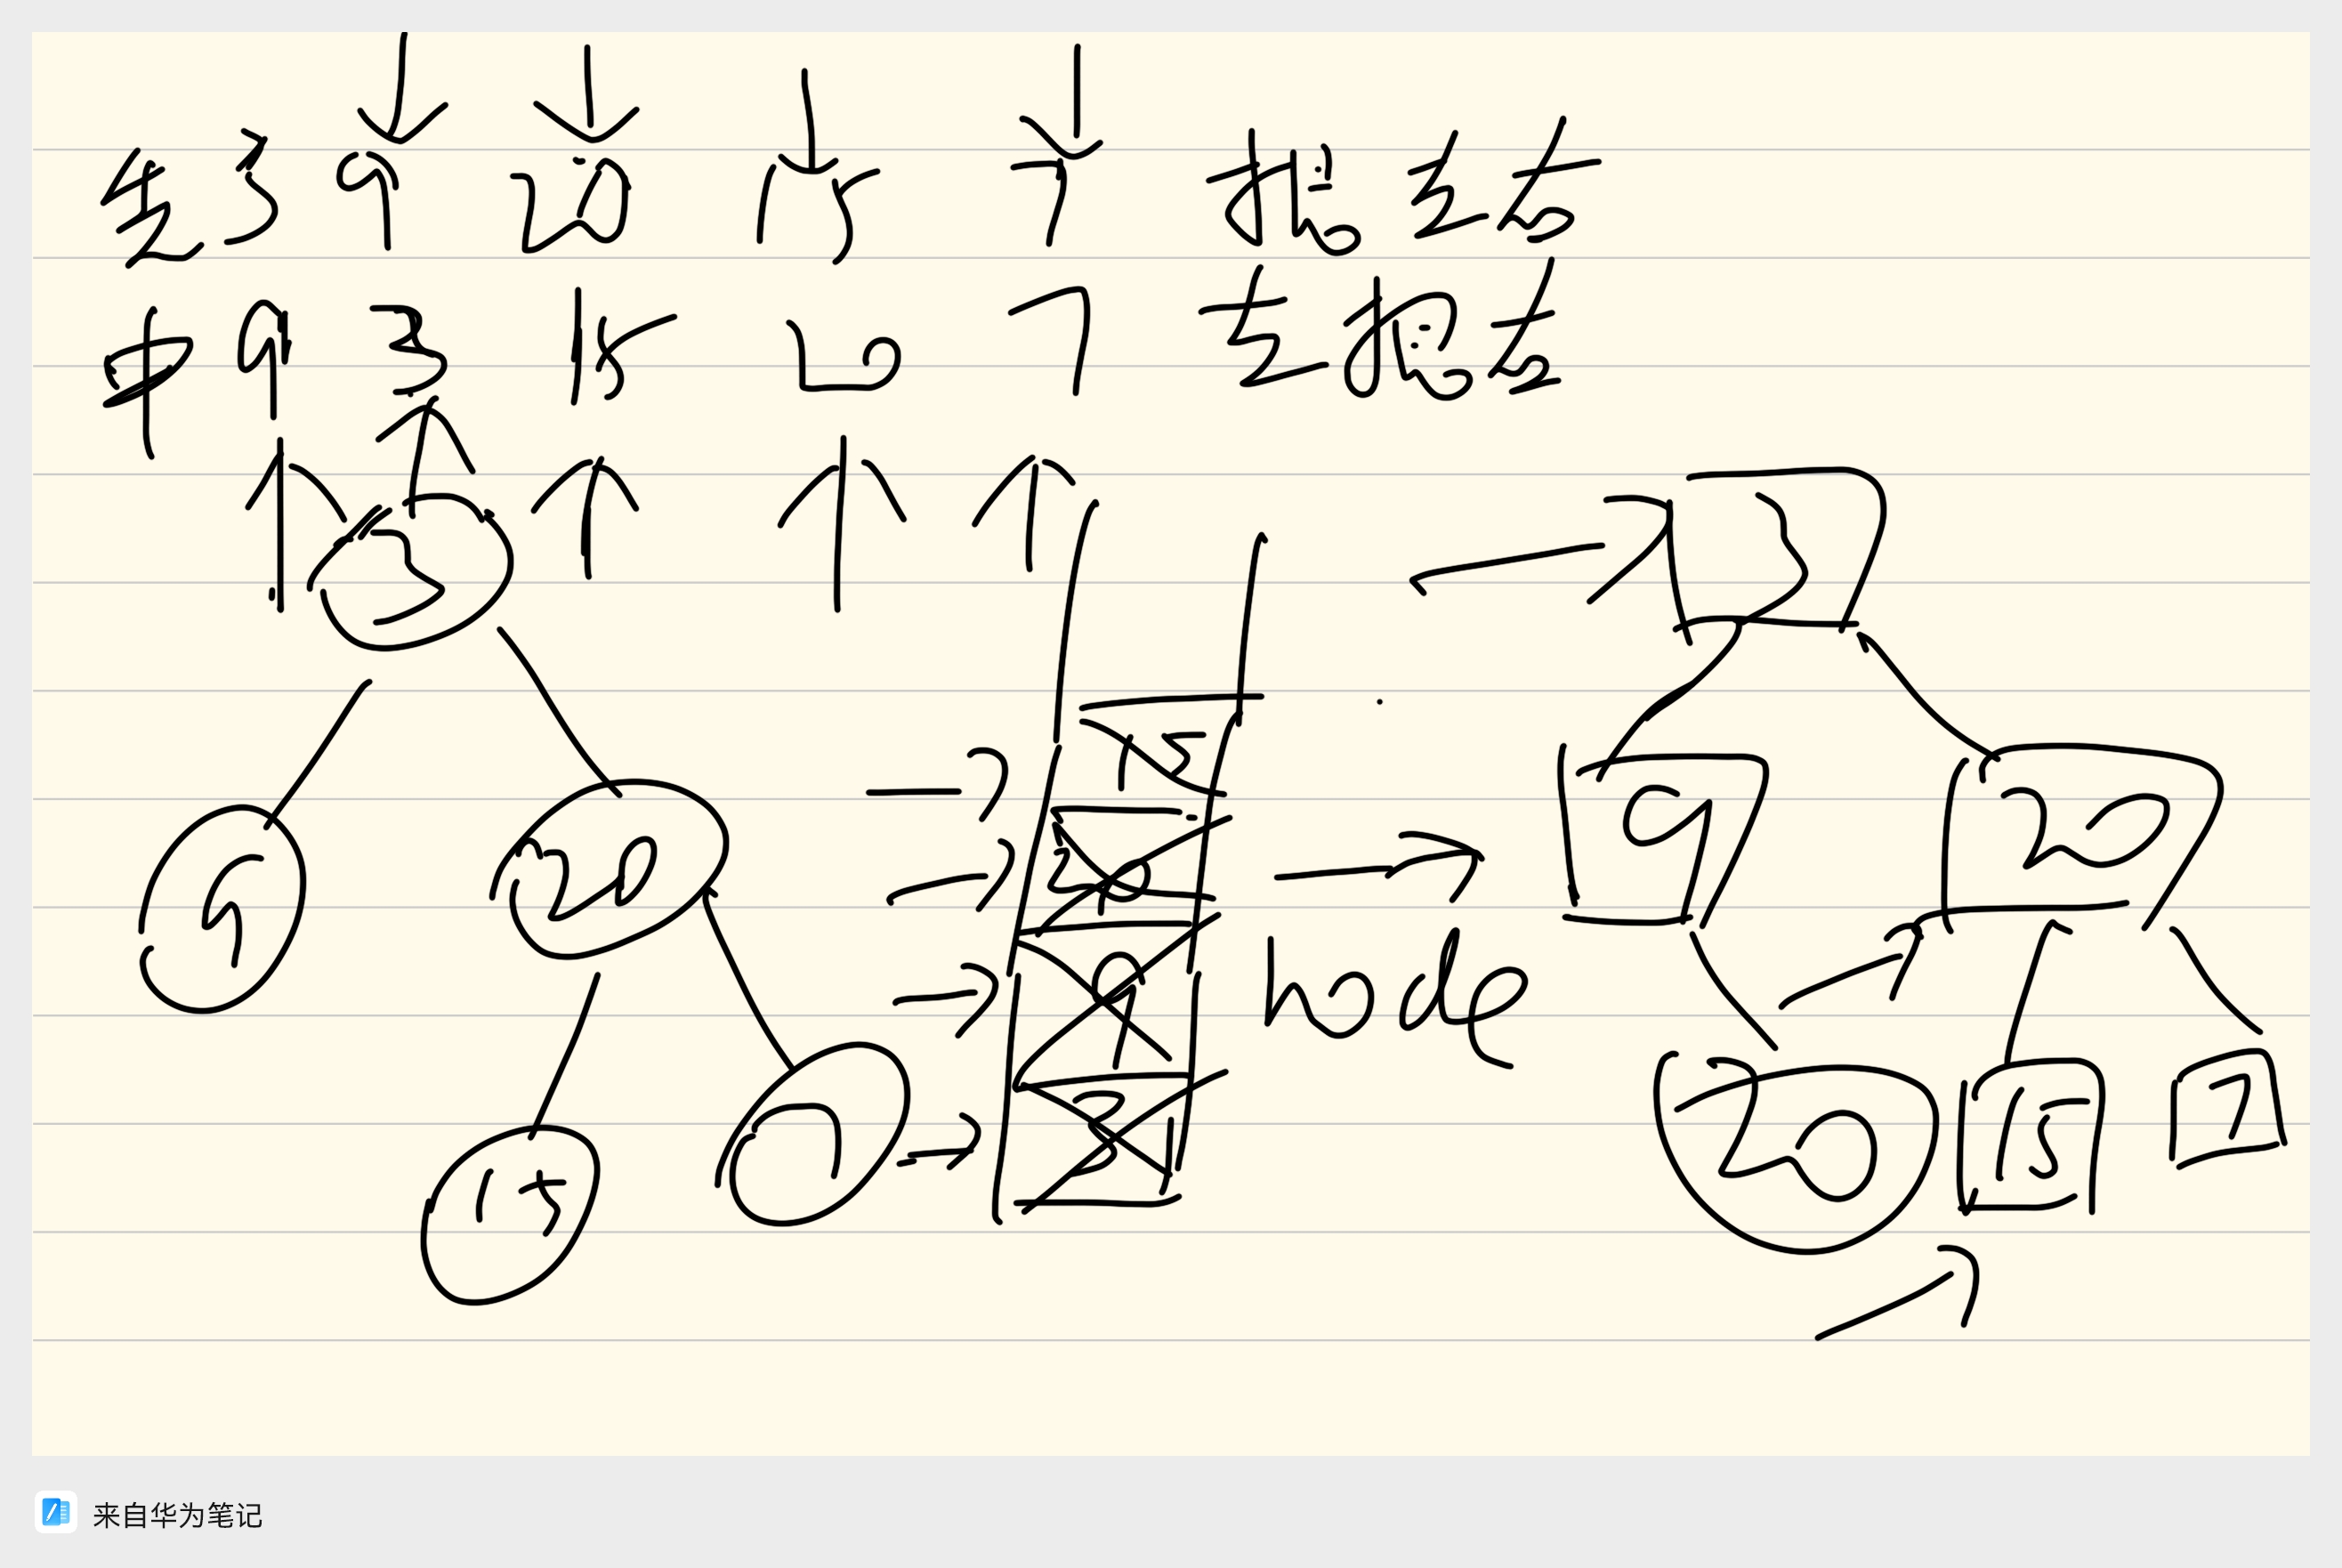 先 3 9 20 15 7 根 左 右
中 9 3 15 20 7 左 根 右
3
3
9
20
15
20
20
9
node
9
3
15
20
15
7
来自华为笔记